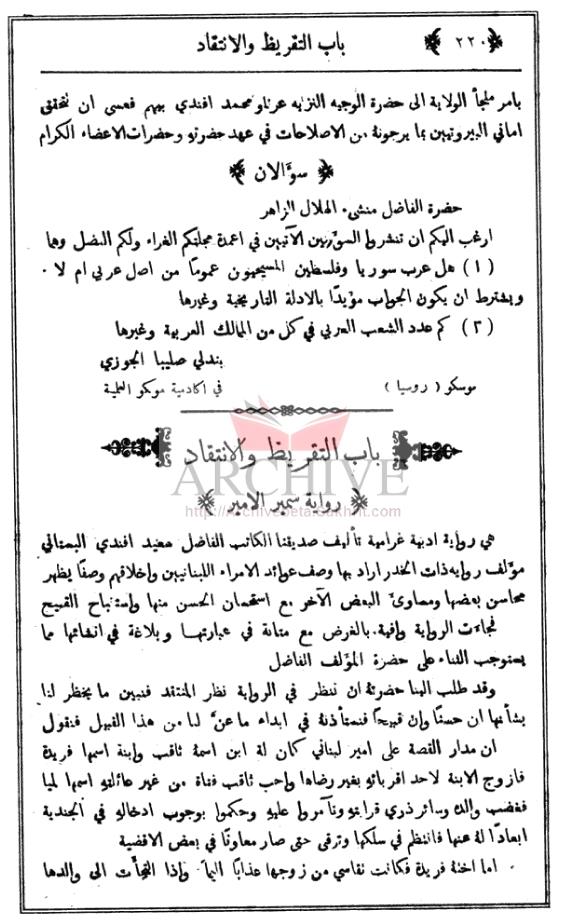 باب التقريظ والانتقاد ٢٢٠
بامر ملجأ الولاية الى حضرة الوجيه النزيه عزتلو محمد افندي بيهم فعسى ان تتحقق
اماني البيروتيين بما يرجونهُ من الاصلاحات في عهد حضرتو وحضرات الاعضاء الكرام
سؤالان
حضرة الفاضل منشىء الهلال الزاهر
ارغب اليكم ان تنشروا السؤالين الآتيين في اعمدة مجلتكم الغراء ولكم الفضل وهما
(١) هل عرب سوريا وفلسطين المسيحيون عموماً من اصل عربي ام لا ٠
ويشترط ان يكون الجواب مؤيداً بالادلة التاريخية وغيرها
(٢) كم عدد الشعب العربي في كل من الممالك العربية وغيرها
بندلي صليبا الجوزي
موسكو (روسيا) في اكادمية موسكو العلمية
باب التقريظ والانتقاد
ARCHIVE
رواية سمير الامير
http://Archivebeta.Sakhrit.com
هي رواية ادبية غرامية تأليف صديقنا الكاتب الفاضل سعيد افندي البستاني
مؤلف رواية ذات الخدر اراد بها وصف عوائد الامراء اللبنانيين واخلاقهم وصفاً يظهر
محاسن بعضها ومساوئ البعض الآخر مع استحسان الحسن منها واستقباح القبيح
فجاءت الرواية وافية بالغرض مع متانة في عبارتها وبلاغة في انشائها مما
يستوجب الثناء على حضرة المؤلف الفاضل
وقد طلب الينا حضرتهُ ان ننظر في الرواية نظر المنتقد فنبين ما يخطر لنا
بشأنها ان حسناً وان قبيحاً فنستأذنهُ في ابداء ما عنَّ لنا من هذا القبيل فنقول
ان مدار القصة على امير لبناني كان لهُ ابن اسمهُ ثاقب وابنة اسمها فريدة
فازوج الابنة لاحد اقربائهِ بغير رضاها واحب ثاقب فتاة من غير عائلتهِ اسمها لميا
فغضب والدهُ وسائر ذوي قرابتهِ وتآمروا عليهِ وحكموا بوجوب ادخالهِ في الجندية
ابعاداً لهُ عنها فانتظم في سلكها وترقى حتى صار معاوناً في بعض الاقضية
اما اختهُ فريدة فكانت تقاسي من زوجها عذاباً اليماً واذا التجأت الى والدها